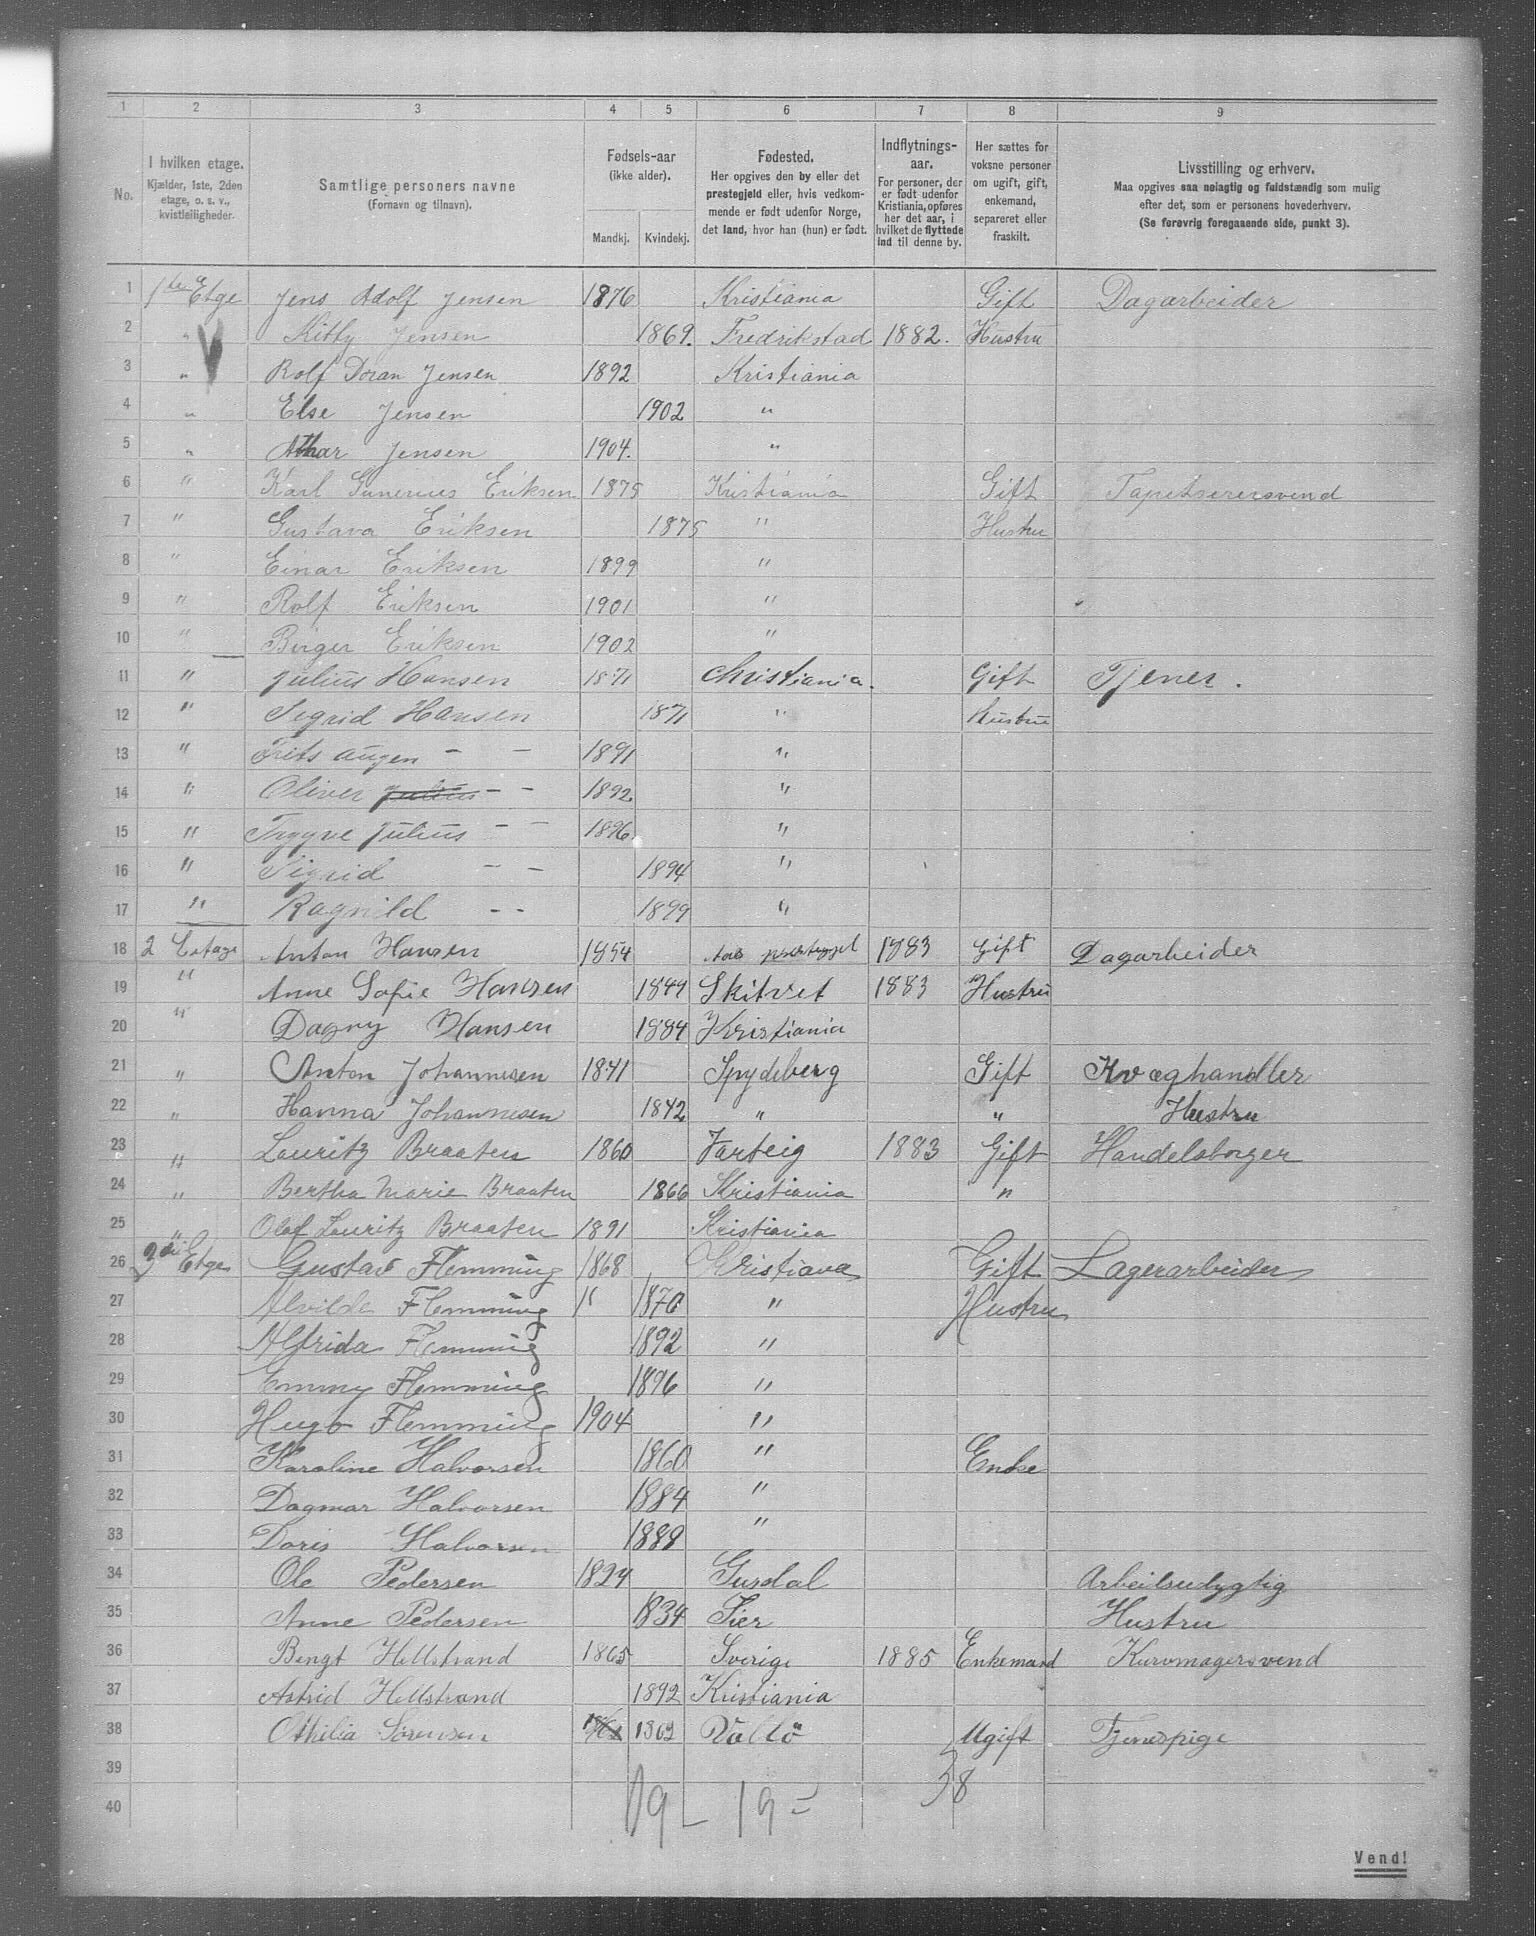 1 2 3 4 5 6 7 8 9
No.
I hvilken etage.
Kjælder, 1ste, 2den
etage, o. s. v.,
kvistleiligheder.
Samtlige personers navne
(Fornavn og tilnavn).
Fødsels-aar
(ikke alder).
Mandkj. Kvindekj.
Fødested.
Her opgives den by eller det
prestegjeld eller, hvis vedkom-
mende er født udenfor Norge,
det land, hvor han (hun) er født.
Indflytnings-
aar.
For personer, der
er født udenfor
Kristiania, opføres
her det aar, i
hvilket de flyttede
ind til denne by.
Her sættes for
voksne personer
om ugift, gift,
enkemand,
separeret eller
fraskilt.
Livsstilling og erhverv.
Maa opgives saa nøiagtig og fuldstændig som mulig
efter det, som er personens hovederhverv.
(Se forøvrig foregaaende side, punkt 3).
1 1ste Etge Jens Adolf Jensen 1876 Kristiania Gift Dagarbeider
2 " Kitty Jensen 1869. Fredrikstad 1882. Hustru
3 " Rolf Doran Jensen 1892 Kristiania
4 " Else Jensen 1902 "
5 " Jensen 1904. "
6 " Karl Gunerius Eriksen 1875 Kristiania Gift Tapetserersvend
7 " Gustava Eriksen 1875 " Hustru
8 " Einar Eriksen 1899 "
9 " Rolf Eriksen 1901 "
10 " Birger Eriksen 1902 "
11 " Julius Hansen 1871 Christiania. Gift Tjener.
12 " Sigrid Hansen 1871 " Hustru
13 " Frits augen - - 1891 "
14 " Oliver Julius - - 1892 "
15 " Trygve Julius - - 1896 "
16 " Sigrid - - 1894 "
17 " Ragnild - - 1899 "
18 2 Etage Anton Hansen 1854 1883 Gift Dagarbeider
19 " Anne Sofie Hansen 1849 Skitvet 1883 Hustru
20 " Dagny Hansen 1884 Kristiania
21 " Anton Johannesen 1841 Spydeberg Gift Kvæghandler
22 " Hanna Johannesen 1842 " " Hustru
23 " Lauritz Braaten 1860 Varteig 1883 Gift Handelsborger
24 " Bertha Marie Braaten 1866 Kristiania "
25 " Olaf Lauritz Braaten 1891 Kristiania
26 3die Etge Gustav Flemming 1868 Kristiania Gift Lagerarbeider
27 Alvilde Flemming " 1870 " Hustru
28 Alfrida Flemming 1892 "
29 Emmy Flemming 1896 "
30 Hugo Flemming 1904 "
31 Karoline Halvorsen 1860 " Enke
32 Dagmar Halvorsen 1884 "
33 Doris Halvorsen 1888 "
34 Ole Pedersen 1824 Gusdal Arbeidsudygtig
35 Anne Pedersen 1834 Lier Hustru
36 Bengt Hellstrand 1865 Sverige 1885 Enkemand Kurvmagersvend
37 Astrid Hellstrand 1892 Kristiania
38 Othilia Sørensen 1862 Vallö Ugift Tjenespige
39
40 19 - 19 = 38
Vend!